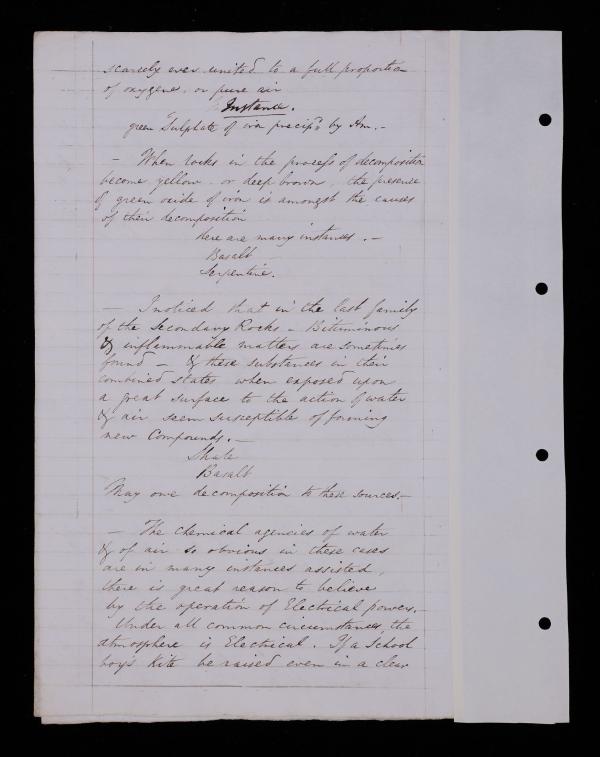 scarcely ever united to a full proportion
of oxygene, or pure air
Instance.
green Sulphate of iron precip.d by Am. -
- When rocks in the process of decomposition
become yellow or deep brown, the presence
of green oxide of iron is amongst the causes
of their decomposition
Here are many instances. -
Basalt -
Serpentine.
- I noticed that in the last family
of the Secondary Rocks - Bituminous
& inflammable matters are sometimes
found - & these substances in their
combined states when exposed upon
a great surface to the action of water
& air seem susceptible of forming
new Compounds. -
Shale
Basalt
May owe decomposition to these sources. -
- The chemical agencies of water
& of air so obvious in these cases
are in many instances assisted,
there is great reason to believe
by the operation of Electrical powers. -
Under all common circumstances, the
atmosphere is Electrical. If a School
boy's Kite be raised even in a clear